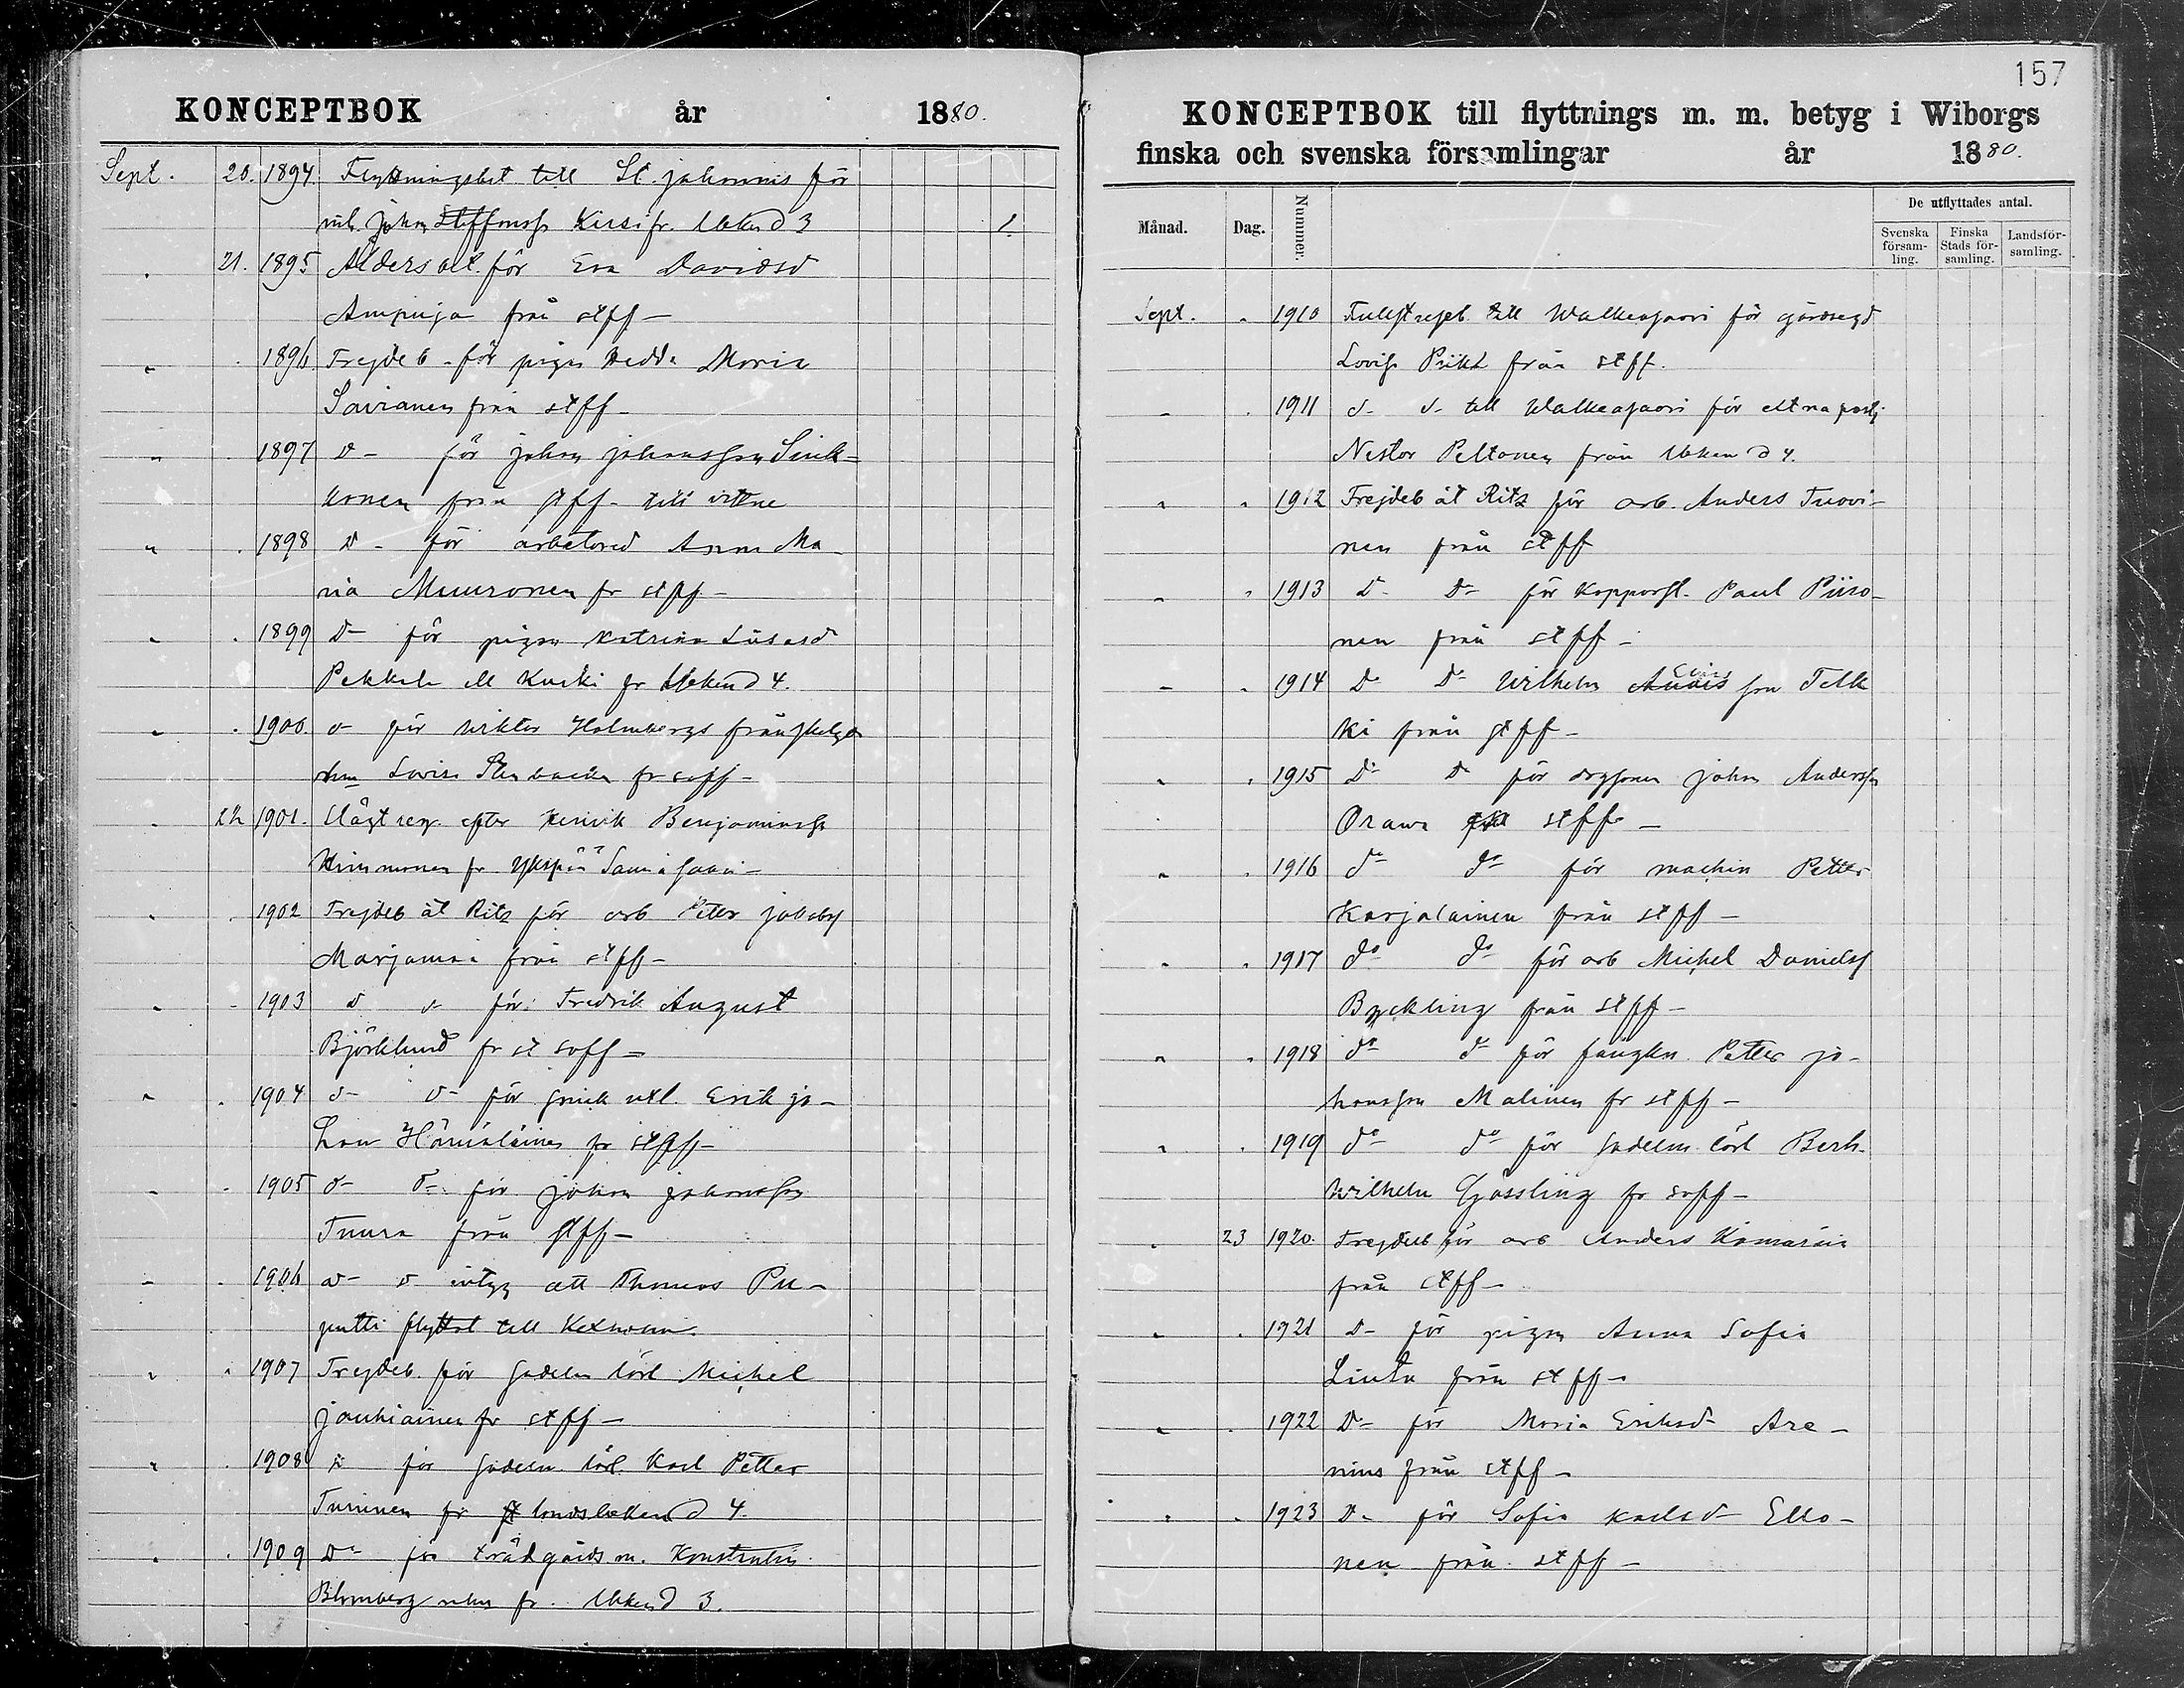 157
KONCEPTBOK år 1880.
Sept. 20. 1894. Flyttningsbet till St. Johannis för
inh. Johan Staffansson Kiesi fr. Ubken d 3 1
21. 1895 Ålders bet. för Eva Davidsd
Ampuja från stff-
1896 Frejdeb. för pigan Hedda Maria
Savianen från stff-
1897 D- för Johan Johansson Sink-
konen från stff- till vittne
1898 D- för arbetared Anna Ma-
ria Muuronen fr stff-
1899 D- för pigan Katrina
Pekkola ell Kurki fr d 4.
1900. d- för Viktor Holmbergs frånskilda
Lovisa fr soff-
22 1901. efter Henrik Benjaminss
Kimmonen fr.
1902 Frejdeb åt Ritz för arb Peter Jakobss
Marjamaa från stff-
1903 d d- för Fredrik August
Björklund fr st soff-
1904 d- d- för Erik Jo-
han Hämäläinen fr stff-
1905 d- d- för Johan Johansson
Tuura från stff-
1906 d- d intyg att Thomas Pu-
putti flyttat till Kexholm.
1907 Frejdeb. för sadelm lärl Michel
Jauhiainen fr stff-
1908 för sadelm. lärl. Karl Petter
Turunen fr d 4.
1909 D- för trädgårdsm. Konstantin
Blomberg fr. Ubken d 3.
KONCEPTBOK till flyttnings m. m. betyg i Wiborgs
finska och svenska församlingar år 1880.
Månad. Dag. Nummer. De utflyttades antal.
Svenska församling. Finska Stads församling. Landsförsamling.
Sept. 1910 till Walkeasaari för
Lovisa från stff.
1911 d- d- till Walkeasaari för
Nestor Peltonen från Ubken d 4.
1912 Frejdeb åt Ritz för arb. Anders Tuovi-
nen från stff
1913 D- D- för Kopparsl. Paul Piiro-
nen från stff-
1914 D- D- Wilhelm son Telk
ki från stff-
1915 D- D för Johan Anderss
Orawa stff-
1916 d- d- för machin Petter
Karjalainen från stff-
1917 do do för arb Michel Danielss
Byckling från stff-
1918 do d- för Petter Jo-
hansson Malinen fr stff-
1919 do do för sadelm. lärl Bernh.
Wilhelm Gässling fr soff-
23 1920. Frejdeb för arb Anders Kämäräin
från stff-
1921 D- för pigan Anna Sofia
Lintu från stff-
1922 D- för Maria Eriksd Are-
nius från stff-
1923 D- för Sofia Karlsd Ello-
nen från stff-